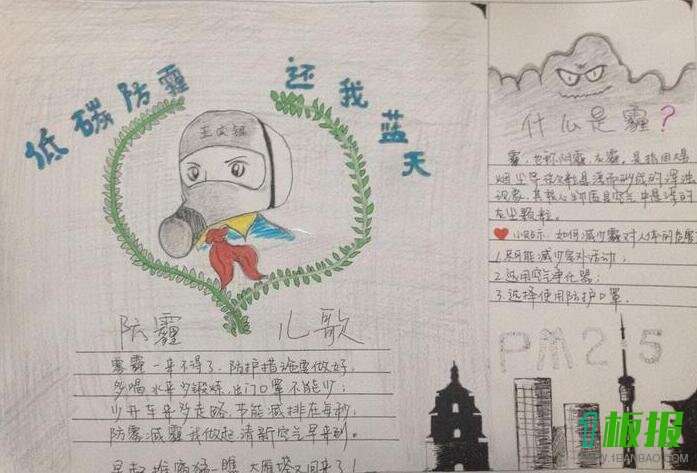 低碳防霾 还我蓝天
防霾 儿歌
雾霾一来不得了,防护措施要做好,
多喝水来少锻炼,出门口罩不能少;
少开车来多走路,节能减排在每秒;
防霾减霾我做起,清新空气早来到。
大雁塔又回来了
什么是霾?
霾,也称阴霾、灰霾,是指因大量
烟尘等微粒悬浮而形成的浑浊
现象,其核心物质是空气中悬浮的
灰尘颗粒。
小贴示:如何减少霾对人体的危害
1.尽可能减少室外活动;
2.选用空气净化器;
3.选择使用防护口罩.
PM2.5
板报
WWW.1BANBAO.COM